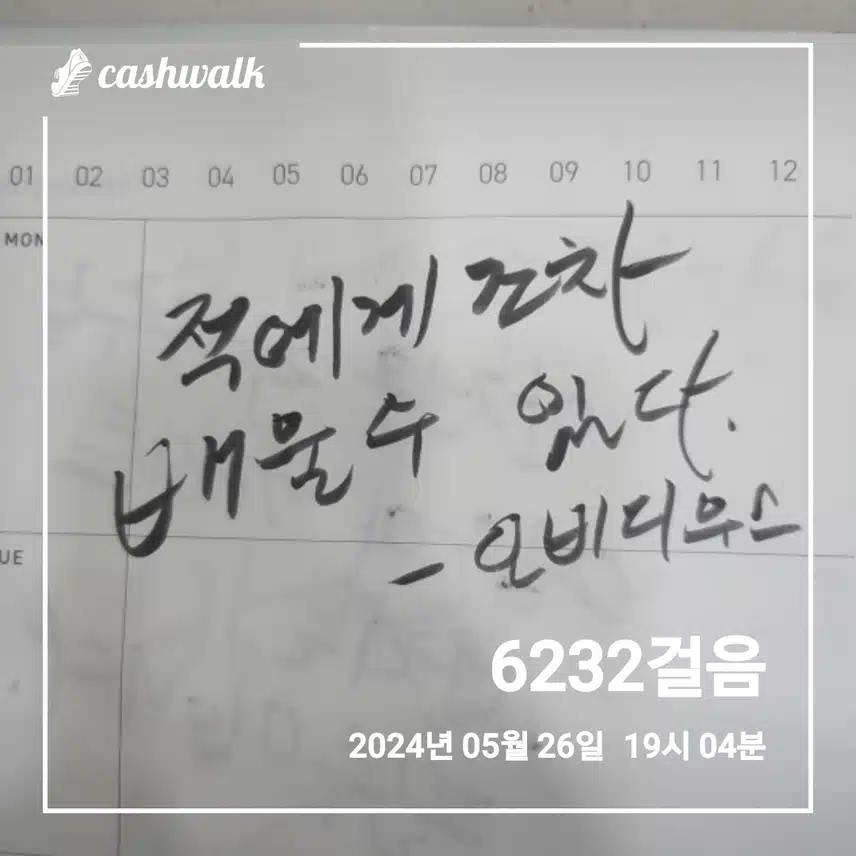 cashwalk
01 02 03 04 05 06 07 08 09 10 11 12
MON
적에게 조차
배울 수 있다.
- 오비디우스
UE
6232걸음
2024년 05월 26일 19시 04분